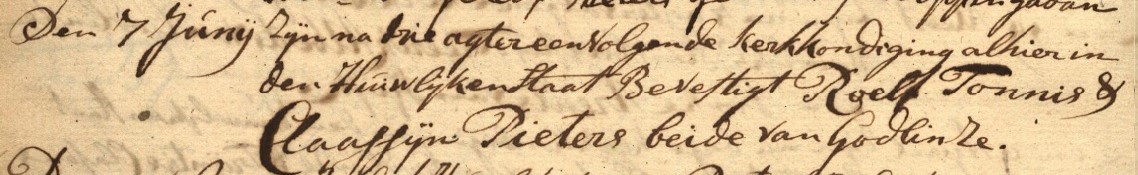 Den 7 Junij Zijn na drie agtereenvolgende kerkkondiging alhier in
den Huwlijken Staat Bevestigt Roelf Tonnis &
Claassijn Pieters beide van Godlinze.